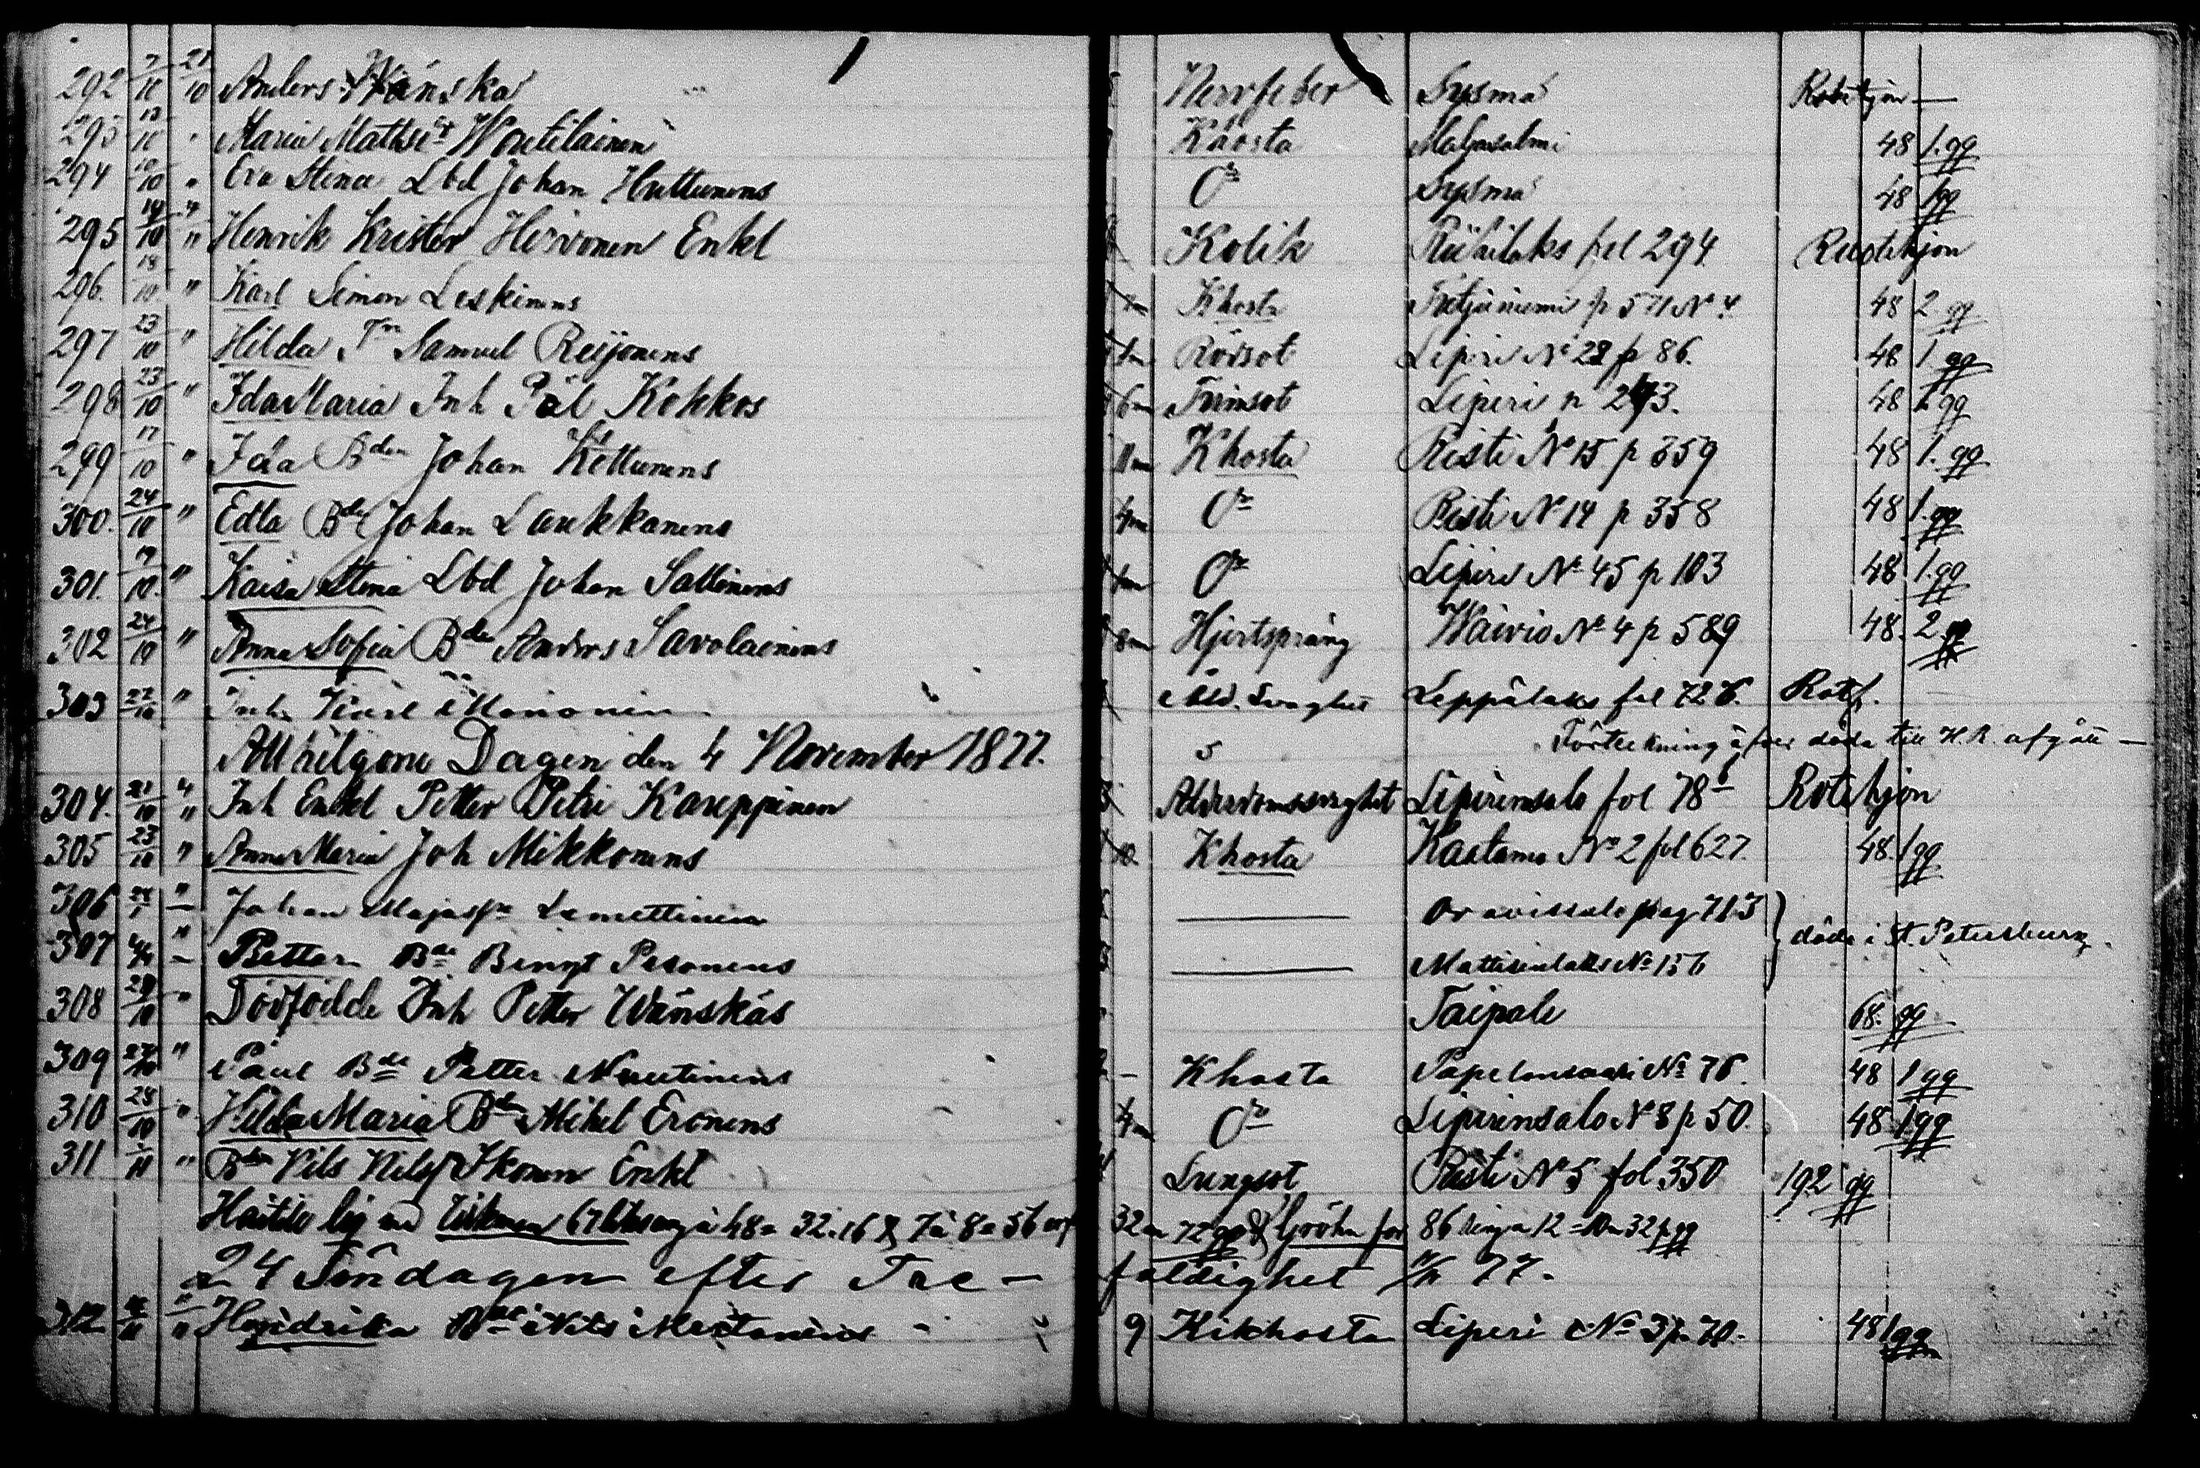 292 7/10 21/10 Anders Wänskä Nervfeber Sysmä Rotehjon —
293 13/10 " Maria Mathsdr Woutilainen Khosta Maljasalmi 48 1 gg
294 10/10 " Eva Stina Lbd Johan Huttunens Do Sysmä 48 1 gg
295 14/10 " Henrik Krister Hirvonen Enkl Kolik Riihilaks fol 294 Rotehjon
296. 18/10 " Karl Simon Leskinens Khosta p 571 No 4. 48 2 gg
297 23/10 " Hilda Samuel Reijonens Rödsot Liperi No 28 p 86. 48 1 gg
298 23/10 " Ida Maria Inh Pål Kokkos 6m Liperi p 293. 48 1 gg
299 17/10 " Ida Bden Johan Kettunens 11m Khosta Risti No 15 p 359 48 1. gg
300. 24/10 " Edla Bde Johan Laukkanens 4m Do Risti No 14 p 358 48 1. gg
301. 19/10. " Kaisa Stina Lbd Johan Sallinens Do Liperi No 45 p 103 48 1. gg
302 24/10 " Anna Sofia Bde Anders Savolainens 8m Hjertsprång Waivio No 4 p 589 48. 2 gg
303 22/10 " Inh. Karl Mononen Åld. Svaghet Leppälaks fol 726. Roteh.
Allhelgona Dagen den 4 November 1877. Förteckning öfver döda till H. R. afgått —
304. 21/10 " Inh Enkl Petter Petri Kareppinen Ålderdomssvaghet Liperinsalo fol 78 Rotehjon
305 23/10 " Anna Maria Joh Mikkonens Khosta Kaatamo No 2 fol 627. 48. 1 gg
306 " Johan Lemettinen — Oravissalo pag 713 } döda i St. Petersburg.
307 " Petter Bde Bengt Pesonens — Mattisenlaks No 156
308 29/10 " Dödfödde Inh Petter Wänskäs Taipale 68. gg
309 27/10 " Paul Bde Petter Nuutinens Khosta Papelonsaari No 76. 48 1 gg
310 28/10 " Hilda Maria Bde Mikel Eronens 4m Do Liperinsalo No 8 p 50. 48 1 gg
311 1/11 " Bden Nils Nilss Ikonen Enkl Lungsot Risti No 5 fol 350 192 gg
à 48 = 32.16 & 7 à 8 = 56 72 gg & för 86
24 Söndagen efter Tre- faldighet 77.
312 " Hendrika Bde Nils Mustonens 9 Kikhosta Liperi No 3 p. 70. 48 1 gg